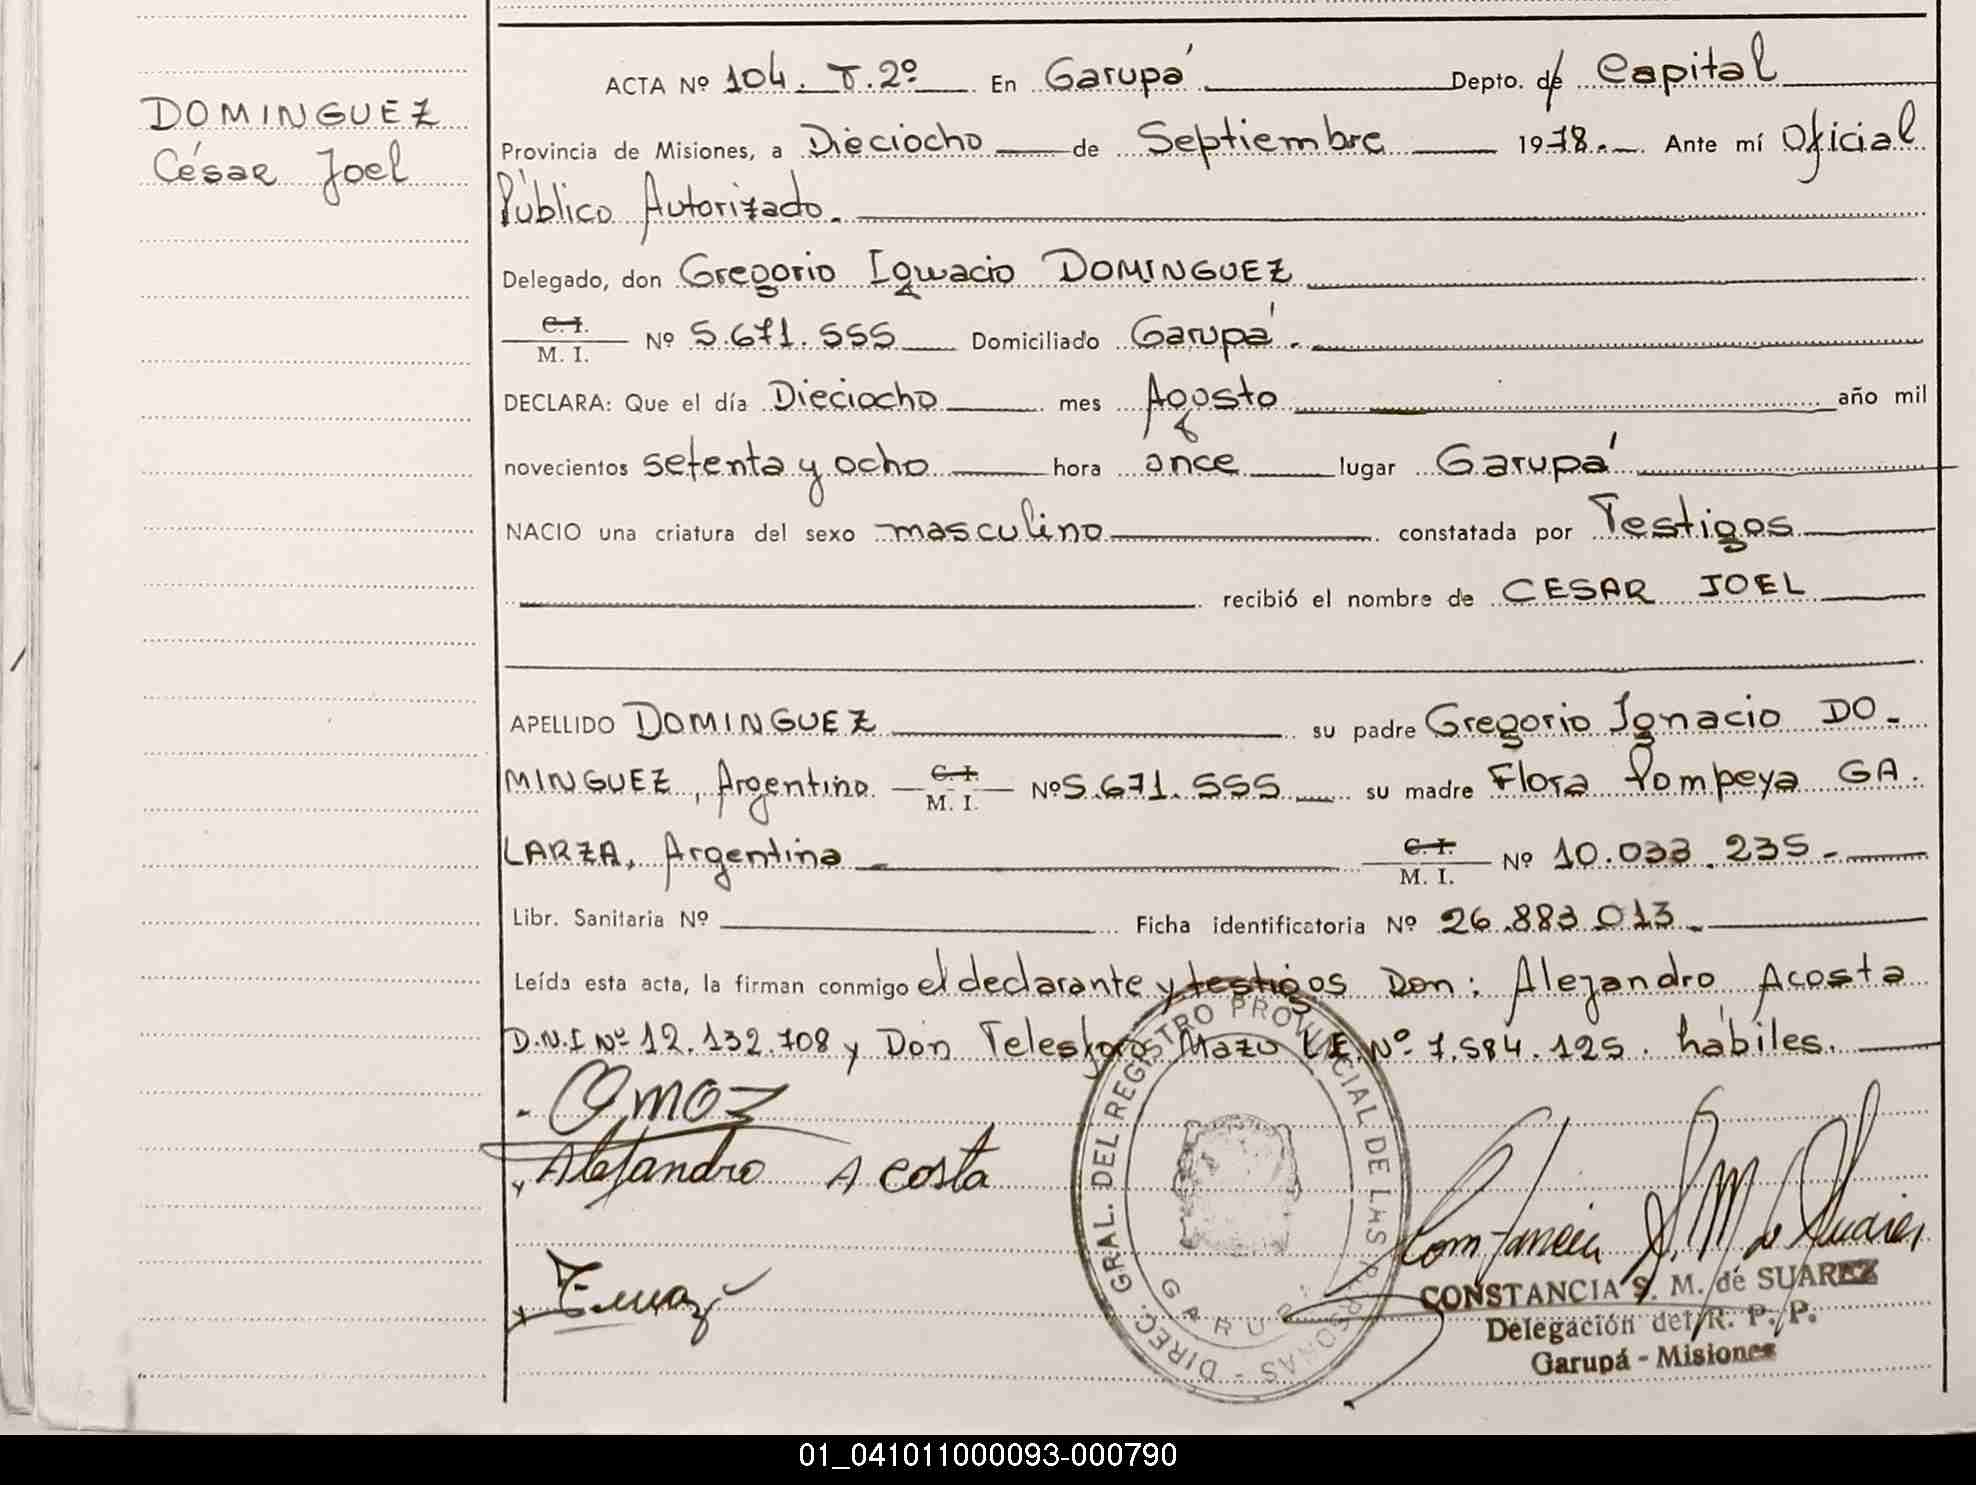 DOMINGUEZ
César Joel
ACTA Nº 104. T. 2º En Garupá Depto. de Capital
Provincia de Misiones, a Dieciocho de Septiembre 1978.- Ante mí Oficial
Público Autorizado.
Delegado, don Gregorio Ignacio DOMINGUEZ
C. I.
M. I. Nº 5.671.555 Domiciliado Garupá.
DECLARA: Que el día Dieciocho mes Agosto año mil
novecientos setenta y ocho hora once lugar Garupá
NACIO una criatura del sexo masculino constatada por Testigos
recibió el nombre de CESAR JOEL
APELLIDO DOMINGUEZ su padre Gregorio Ignacio DO-
MINGUEZ, Argentino C. I.
M. I. Nº 5.671.555 su madre Flora Pompeya GA-
LARZA, Argentina C. I.
M. I. Nº 10.033.235.-
Libr. Sanitaria Nº Ficha identificatoria Nº 26.883.013.-
Leída esta acta, la firman conmigo el declarante y testigos Don: Alejandro Acosta
D.N.I Nº 12.132.708 y Don Telesforo Mazu L.E. Nº 7.584.125. hábiles.
Alejandro Acosta
DIREC. GRAL. DEL REGISTRO PROVINCIAL DE LAS PERSONAS -
GARUPA
Constancia S. M. de Suarez
CONSTANCIA S. M. de SUAREZ
Delegación del R. P. P.
Garupá - Misiones
01_041011000093-000790